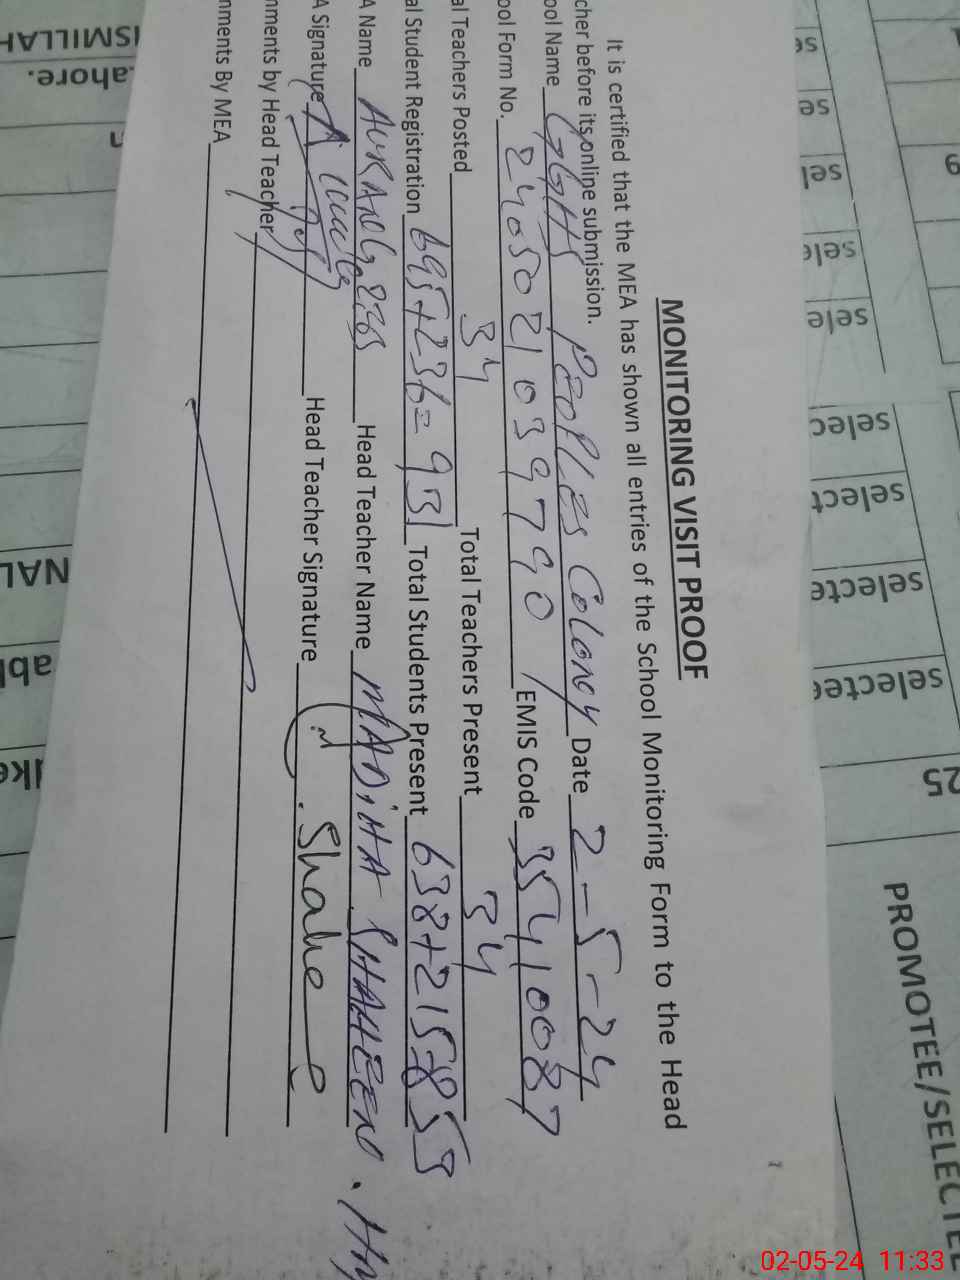 MONITORING VISIT PROOF
It is certified that the MEA has shown all entries of the School Monitoring Form to the Head
cher before its online submission.
ool Name GGHS PEOPLES COLONY Date 2-5-24
ool Form No. 2405021039790 EMIS Code 35410087
al Teachers Posted 34 Total Teachers Present 34
al Student Registration 695+236=931 Total Students Present 638+215=853
A Name AURANGZEB Head Teacher Name MADIHA SHAHEEN. HM
A Signature Head Teacher Signature
nments by Head Teacher
nments By MEA
ISMILLAH
ahore.
n
NAL
abl
ike
se
se
sel
sele
sele
selec
select
selecte
selectee
9
25
PROMOTEE/SELECTEE
02-05-24 11:33